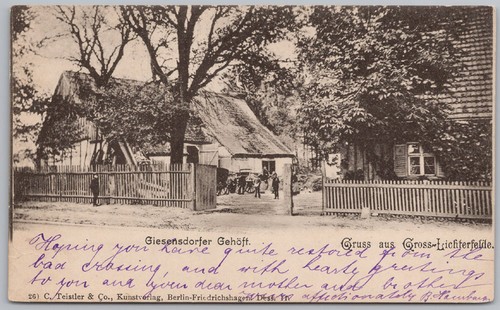 Giesensdorfer Gehöft.
Gruss aus Gross-Lichterfelde.
Hoping you have quite restored from the
bad crossing, and with hearty greetings
to you and your dear mother and brother
26) C. Teistler & Co., Kunstverlag, Berlin-Friedrichshagen Dess. Pr.
affectionately